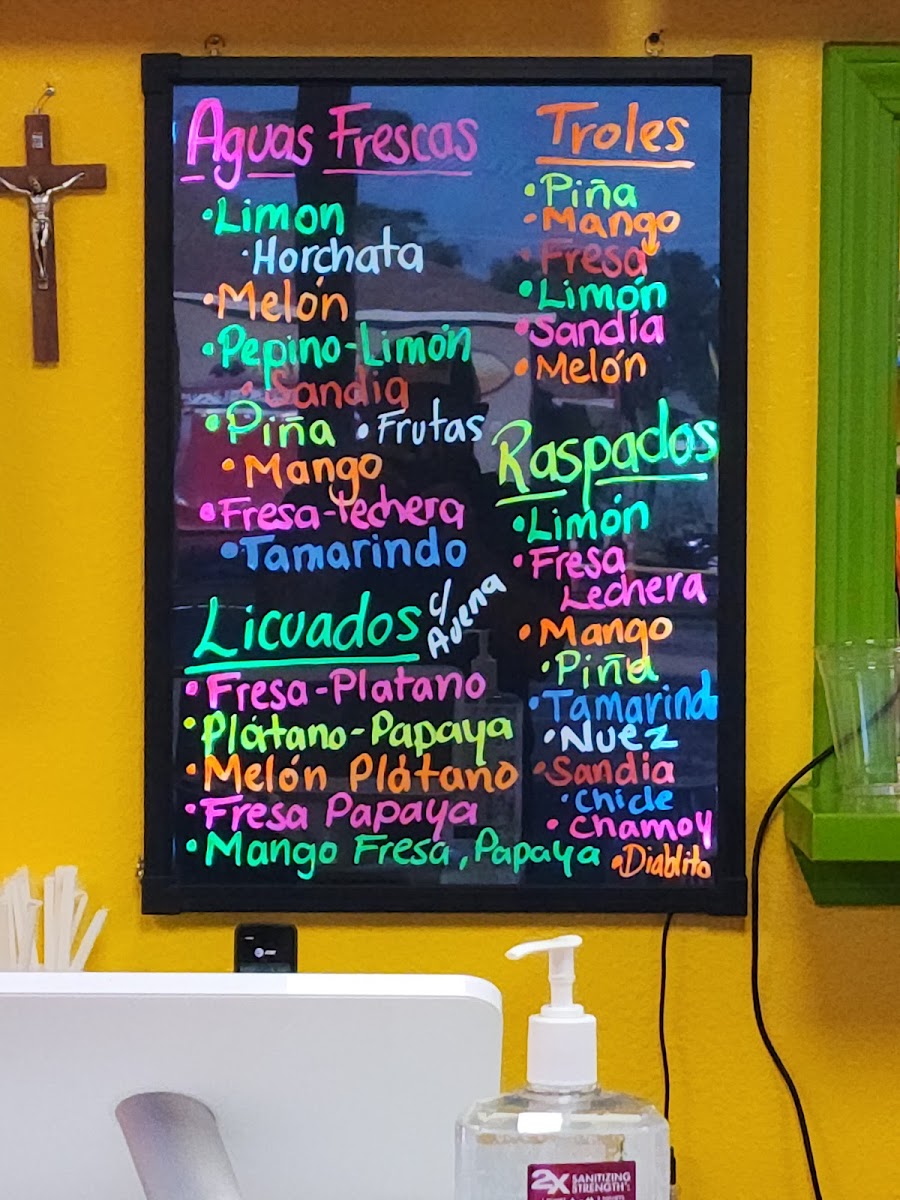 Aguas Frescas
•Limon
•Horchata
•Melón
•Pepino-Limón
•Sandia
•Piña •Frutas
•Mango
•Fresa-Lechera
•Tamarindo
Licuados c/ Avena
•Fresa-Platano
•Plátano-Papaya
•Melón Plátano
•Fresa Papaya
•Mango Fresa, Papaya
Troles
•Piña
•Mango
•Fresa
•Limón
•Sandía
•Melón
Raspados
•Limón
•Fresa
Lechera
•Mango
•Piña
•Tamarindo
•Nuez
•Sandia
•Chicle
•Chamoy
•Diablito
AT&T
2X SANITIZING
STRENGTH